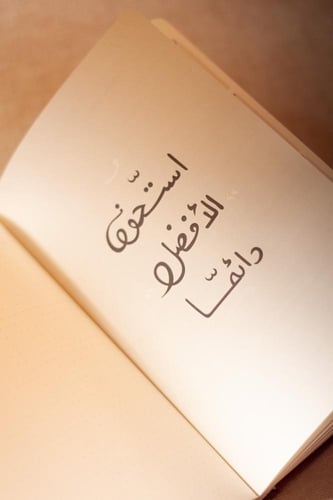 استحقّ
الأفضل
دائمًا